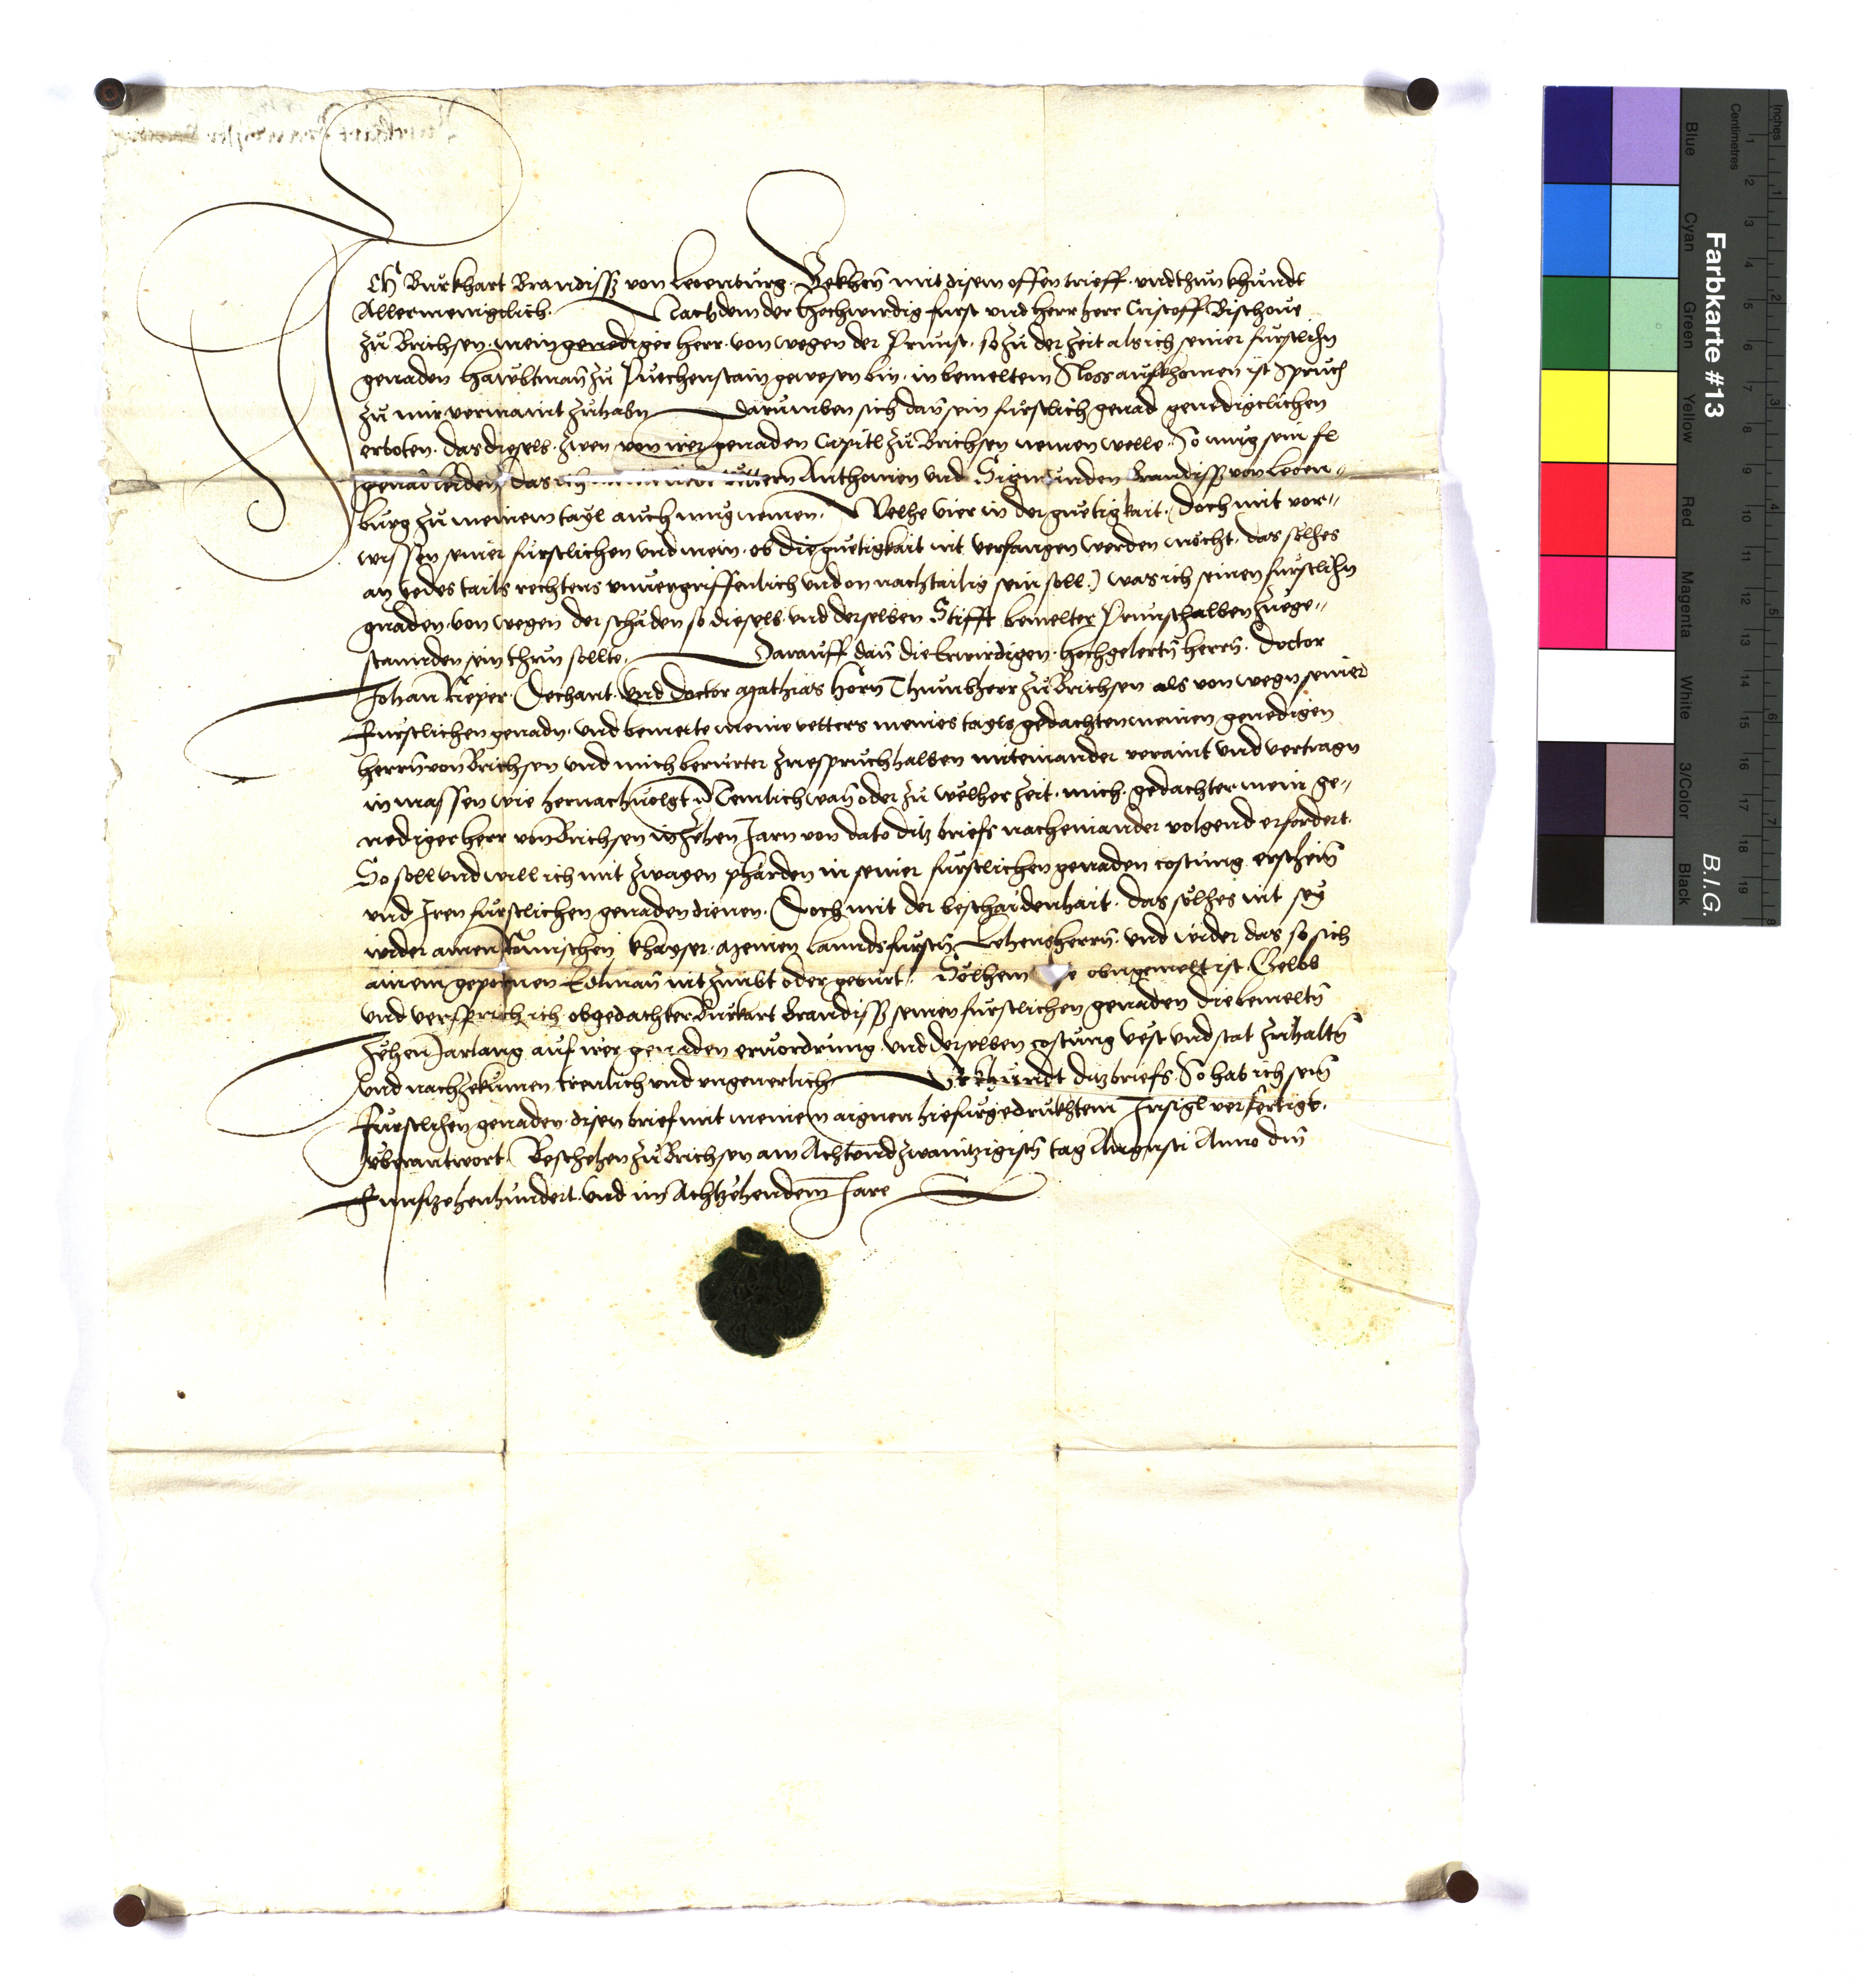 Ich Burkhart Brandiss von Leoenburg. Bekhen mit disem offen brieff. und thun khundt
Allermenigclich. Nachdem der hochwirdig furst und herr herr Cristoff Bischove
zu Brichsen. mein genediger herr. von wegen der Prunst. so zu der zeit als ich seiner furstlichn
genaden haubtman zu Puechenstain gewesen bin. in bemeltem Sloss aufkhomen ist Spruch
zu mir vermaint zuhabn darumben sich dan sein furstlich genad genedigclichen
erboten. das dieselb. zwen von irer genaden Capitl zu Brichsen nemen welle. So mug sein fl
genad leiden das ich vettern Anthonien und Sigmunden Brandiss von Leoen-
burg zu meinem tayl auch mug nemen. Welhe vier in der guetigkait. doch mit vor-
wissen seiner furstlichen und mein. ob die guetigkait nit verfangen werden möcht. das sölhes
an yedes tails rechtens unvergriffenlich und on nachtailig sein soll. was ich seinen furstlichn
gnaden. von wegen der schäden so dieselb. und derselben Stifft bemelter Prunst halben zuege-
stannden sein thun sollte. Darauff dan die Erwirdigen. hochgelertn herrn. Doctor
Johan Rieper. Dechant. und doctor Mathias Horn Thumbherr zu Brichsen als von wegn seiner
Furstlichen genadn. und bemelte meine vetters meines tayls gedachten meinen genedigen
herrn von Brichsen und mich berurter zuespruch halben miteinander veraint und vertragn
inmassen wie hernachvolgt Nemlich wan oder zu welher zeit. mich. gedachter mein ge-
nediger herr von Brichsen in zehen Jarn von dato ditz briefs nacheinander volgend erfordert.
So soll und will ich mit zwayen phärden in seiner furstlichen genaden costung erschein
und Iren furstlichen genaden dienen. Doch mit der beschaidenhait. das sölhes nit sey
wider ainen Römischen khayser. meinen Lanndsfurstn Lehensherrn. und wider das so sich
ainem gepornen Edlman nit zimbt oder geburt. Sölhem obngemelt ist. Gelob
und versprich ich obgedachter Burkart Brandiss seinen furstlichen genaden die bemeltn
zehen Jarlang auf irer genaden ervordrung. und derselben costung vest und stat zuhaltn
und nachzekumen trewlich und ungeverlich Urkhundt ditz briefs. So hab ich sein
Furstlichen genaden disen brief mit meinem aignen hiefurgedrukhtem Insigl verfertigt.
uberantwort. Beschehen zu Brichsen am Achtundzwaintzigistn tag Augusti Anno dm
Funfzehenhundert. und im Achtzehendem Jare
Farbkarte #13
B.I.G.
Centimetres
Inches
Blue
Cyan
Green
Yellow
Red
Magenta
White
3/Color
Black
1 2 3 4 5 6 7 8 9 10 11 12 13 14 15 16 17 18 19
1 2 3 4 5 6 7 8